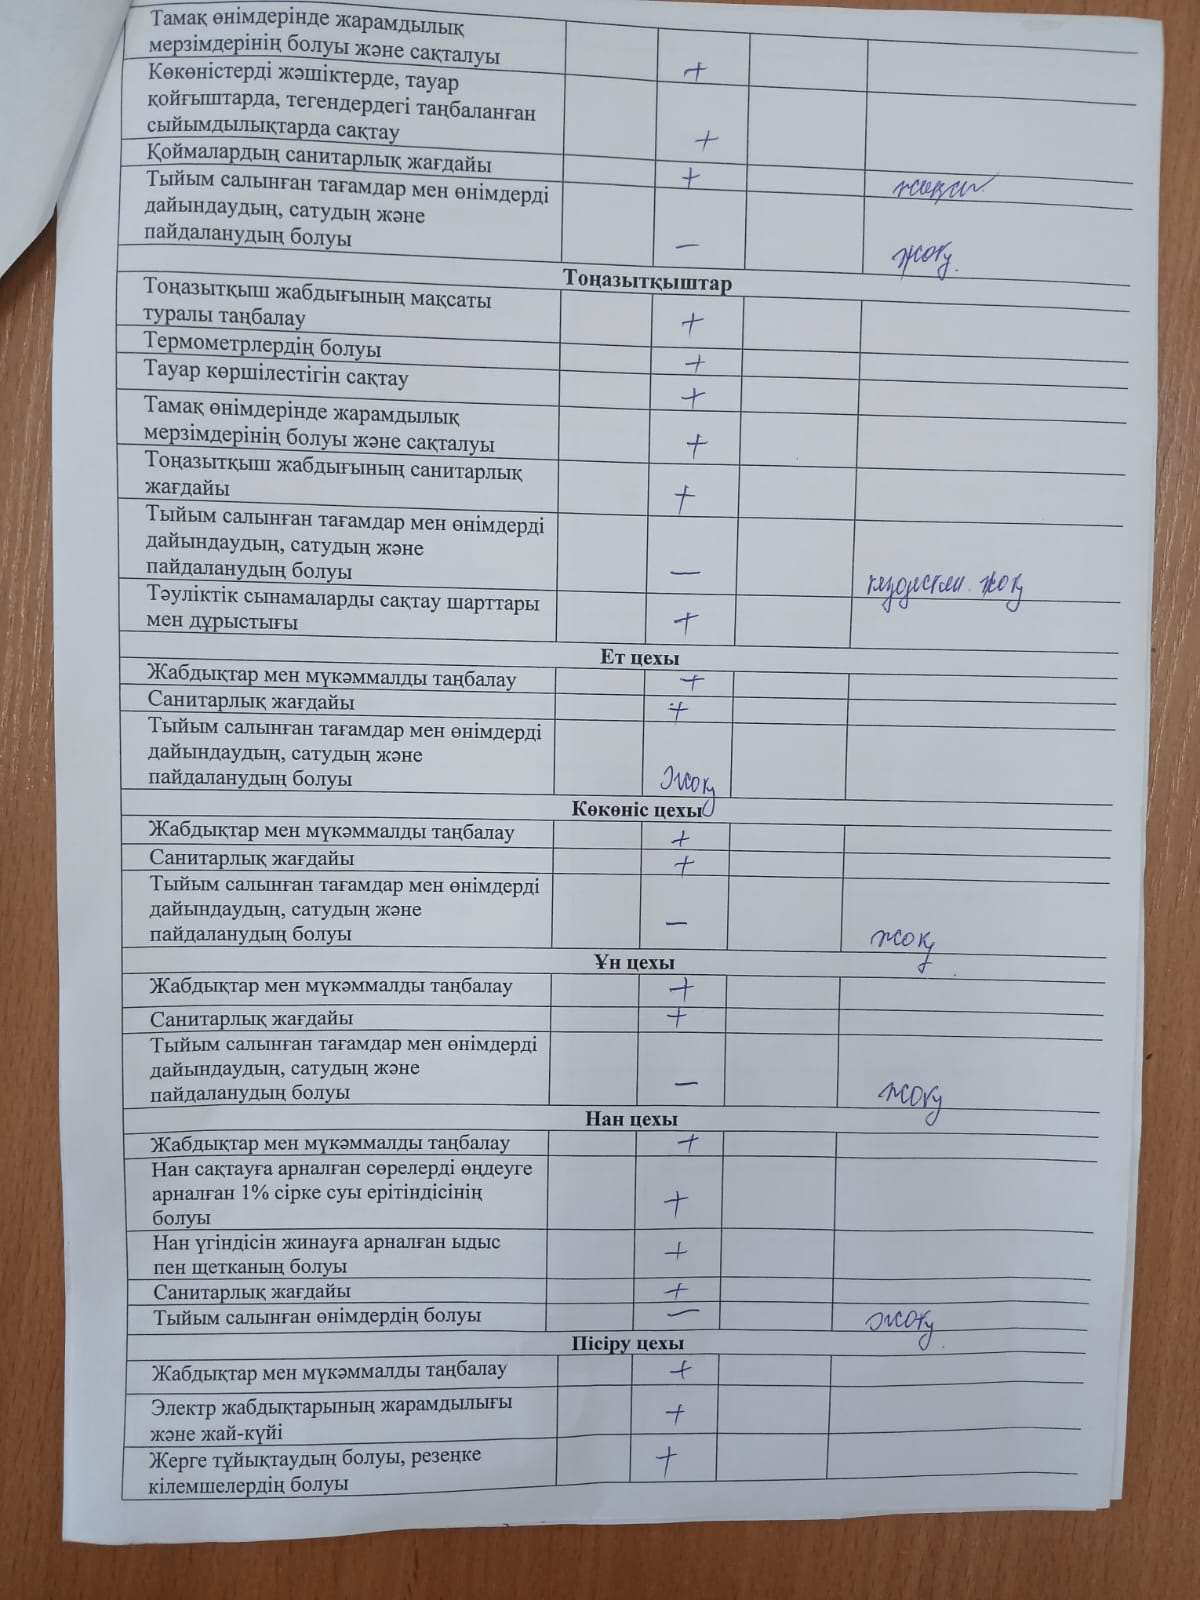 Тамақ өнімдерінде жарамдылық
мерзімдерінің болуы және сақталуы +
Көкөністерді жәшіктерде, тауар
қойғыштарда, тегендердегі таңбаланған
сыйымдылықтарда сақтау +
Қоймалардың санитарлық жағдайы + жақсы
Тыйым салынған тағамдар мен өнімдерді
дайындаудың, сатудың және
пайдаланудың болуы — жоқ.
Тоңазытқыштар
Тоңазытқыш жабдығының мақсаты
туралы таңбалау +
Термометрлердің болуы +
Тауар көршілестігін сақтау +
Тамақ өнімдерінде жарамдылық
мерзімдерінің болуы және сақталуы +
Тоңазытқыш жабдығының санитарлық
жағдайы +
Тыйым салынған тағамдар мен өнімдерді
дайындаудың, сатудың және
пайдаланудың болуы — жоқ
Тәуліктік сынамаларды сақтау шарттары
мен дұрыстығы +
Ет цехы
Жабдықтар мен мүкәммалды таңбалау +
Санитарлық жағдайы +
Тыйым салынған тағамдар мен өнімдерді
дайындаудың, сатудың және
пайдаланудың болуы Жоқ
Көкөніс цехы
Жабдықтар мен мүкәммалды таңбалау +
Санитарлық жағдайы +
Тыйым салынған тағамдар мен өнімдерді
дайындаудың, сатудың және
пайдаланудың болуы — жоқ
Ұн цехы
Жабдықтар мен мүкәммалды таңбалау +
Санитарлық жағдайы +
Тыйым салынған тағамдар мен өнімдерді
дайындаудың, сатудың және
пайдаланудың болуы — жоқ
Нан цехы
Жабдықтар мен мүкәммалды таңбалау +
Нан сақтауға арналған сөрелерді өңдеуге
арналған 1% сірке суы ерітіндісінің
болуы +
Нан үгіндісін жинауға арналған ыдыс
пен щетканың болуы +
Санитарлық жағдайы +
Тыйым салынған өнімдердің болуы — жоқ
Пісіру цехы
Жабдықтар мен мүкәммалды таңбалау +
Электр жабдықтарының жарамдылығы
және жай-күйі +
Жерге тұйықтаудың болуы, резеңке
кілемшелердің болуы +